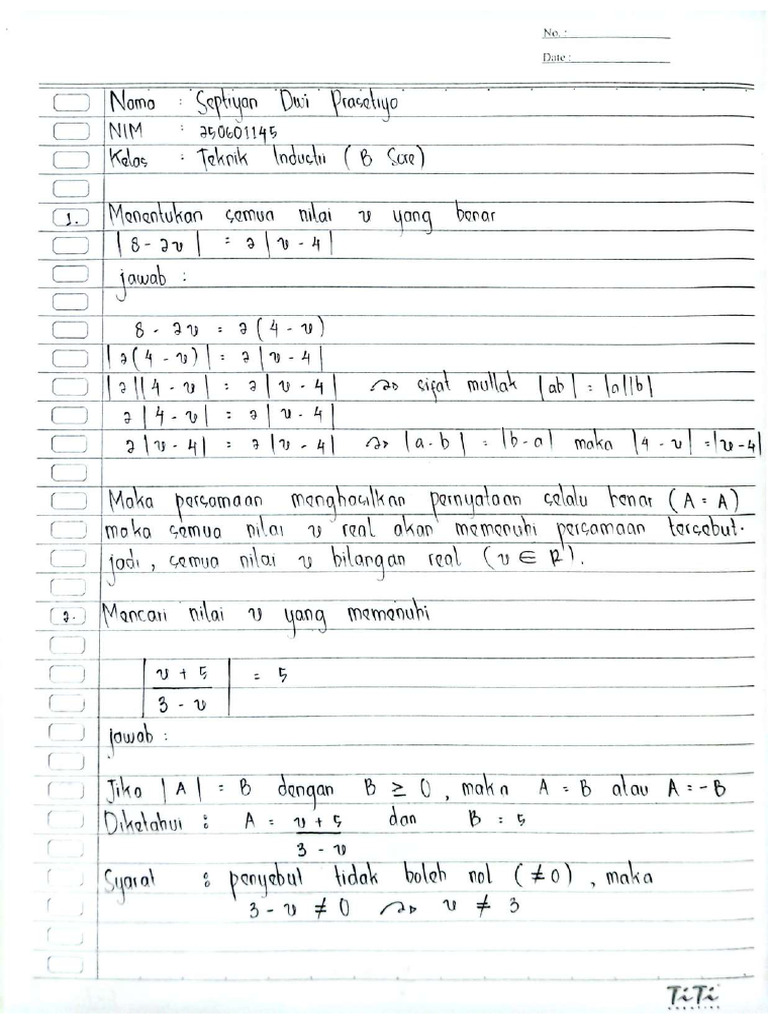 No. :
Date :
Nama : Septiyan Dwi Prasetiyo
NIM : 250601145
Kelas : Teknik Industri ( B Sore )
1. Menentukan semua nilai v yang benar
| 8 - 2v | = 2 | v - 4 |
jawab :
8 - 2v = 2 ( 4 - v )
| 2 ( 4 - v ) | = 2 | v - 4 |
| 2 | | 4 - v | = 2 | v - 4 | ⤳ sifat mutlak |ab| = |a||b|
2 | 4 - v | = 2 | v - 4 |
2 | v - 4 | = 2 | v - 4 | ⤳ |a - b| = |b - a| maka |4 - v| = |v - 4|
Maka persamaan menghasilkan pernyataan selalu benar ( A = A )
maka semua nilai v real akan memenuhi persamaan tersebut.
jadi, semua nilai v bilangan real ( v ∈ R ).
2. Mencari nilai v yang memenuhi
| (v + 5) / (3 - v) | = 5
jawab :
Jika | A | = B dengan B ≥ 0, maka A = B atau A = - B
Diketahui : A = (v + 5) / (3 - v) dan B = 5
Syarat : penyebut tidak boleh nol ( ≠ 0 ), maka
3 - v ≠ 0 ⤳ v ≠ 3
TiTi